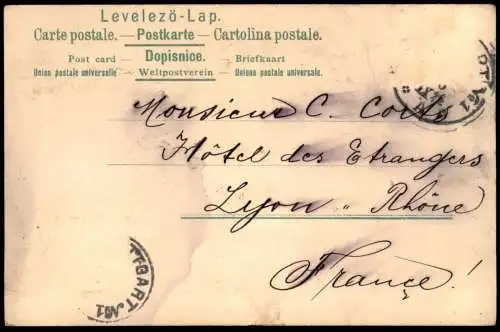 Levelezö-Lap.
Carte postale. — Postkarte — Cartolina postale.
Post card — Dopisnice. — Briefkaart
Union postale universelle — Weltpostverein — Unione postale universale.
Monsieur C.
Hôtel des Etrangers
Lyon „ Rhône
France!
TGART No1